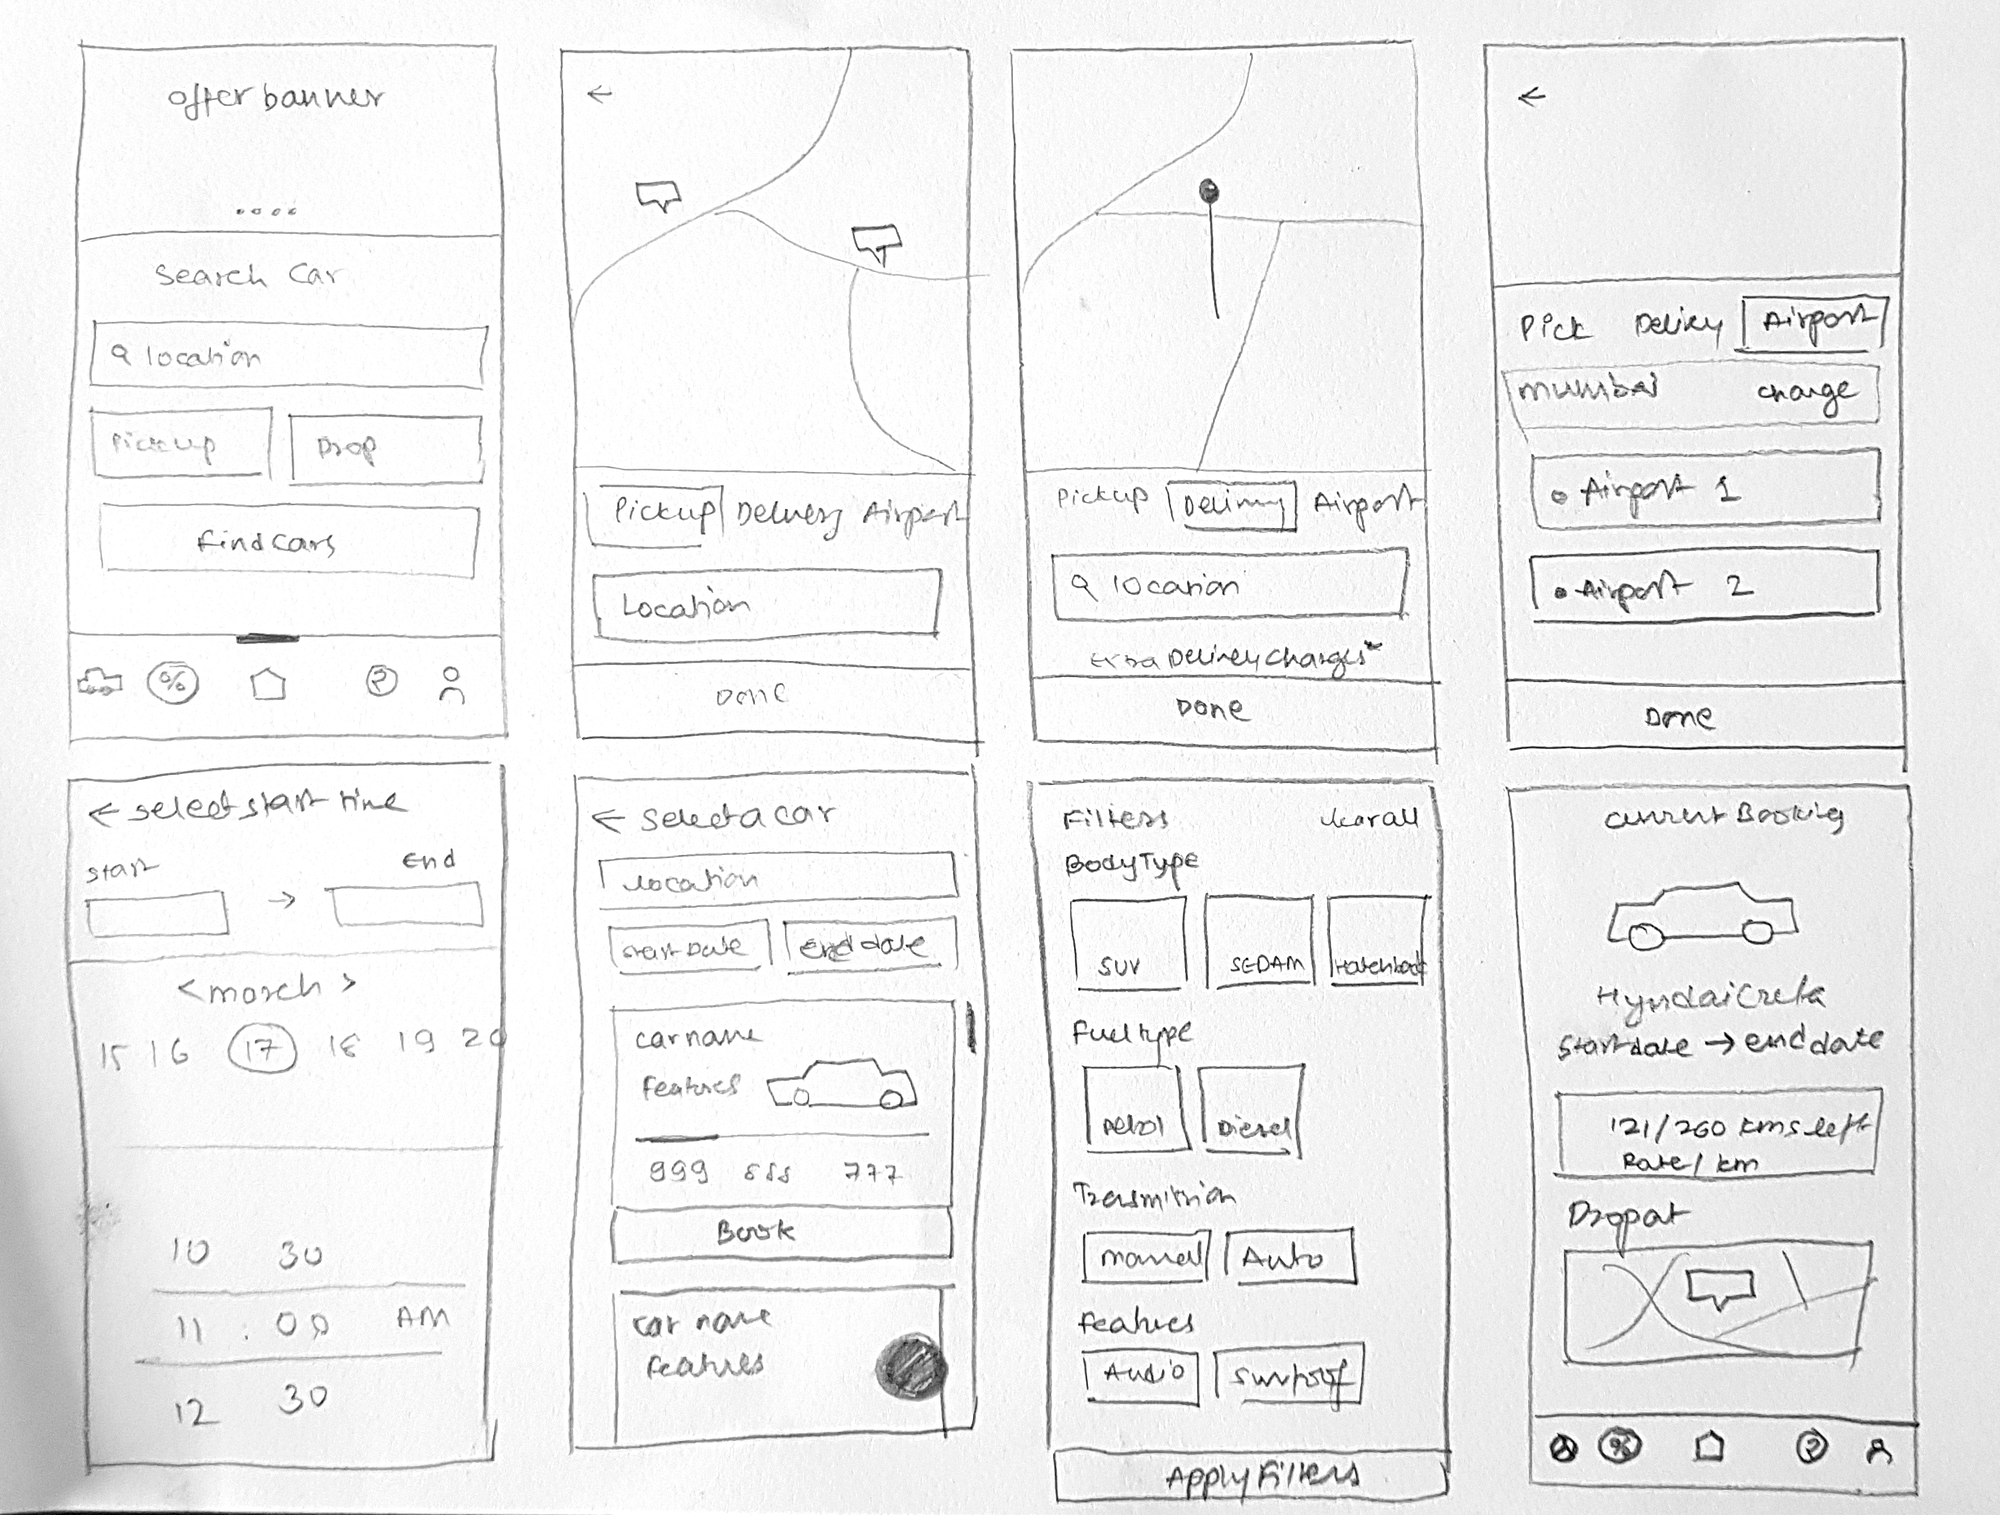 offer banner
Search Car
location
Pickup
Drop
Find Cars
%
Pickup
Delivery
Airport
Location
Done
Pickup
Delivery
Airport
location
Extra Delivery Charges*
Done
Pick
Airport
mumbai
change
Airport 1
Airport 2
Done
select start time
start
End
< march >
15 16 17 18 19 20
10 30
11 : 00 AM
12 30
select a car
location
start Date
end date
car name
features
999 888 777
Book
car name
features
Filters
clear all
Body Type
SUV
SEDAM
Hatchback
Fuel type
Petrol
Diesel
Transmission
manual
Auto
features
Audio
sunroof
Apply Filters
current Booking
Hyndai Creta
Start date → end date
121/260 kms left
Rate / km
Drop at
%